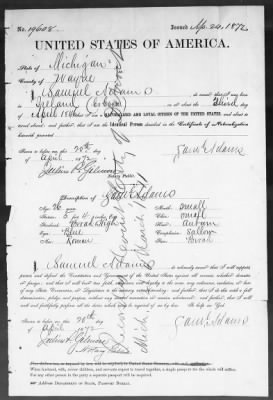 No. 19608. Issued Ap. 24, 1872
UNITED STATES OF AMERICA.
State of Michigan
County of Wayne
I, Samuel Adams
Ireland on or about the Third day
April 18 that I am a NATURALIZED AND LOYAL CITIZEN OF THE UNITED STATES, and about to
travel abroad; and further, that I am the Identical Person described in the Certificate of Naturalization
herewith presented.
Sworn to before me this 20th day
of April 1872
Saml Adams
Julius P. Gilmore
Notary Public.
Description of Saml Adams
Age: 26 years Mouth: small
Stature: 5 feet 4 inches Eng. Chin: small
Forehead: Broad & High Hair: Auburn
Eyes: Blue Complexion: Sallow
Nose: Roman Face: Broad
I, Samuel Adams do solemnly swear that I will support,
protect and defend the Constitution and Government of the United States against all enemies, whether domestic
or foreign; and that I will bear true faith, allegiance and loyalty to the same, any ordinance, resolution or law
of any State, Convention, or Legislature to the contrary notwithstanding; and further, that I do this with a full
determination, pledge and purpose, without any mental reservation or evasion whatsoever; and further, that I will
well and faithfully perform all the duties which may be required of me by law. So help me God.
Sworn to before me this 20th day
of April 1872
Saml Adams
Julius P. Gilmore
Notary Public
wife, minor children, and servants expect to travel together, a single passport for the whole will suffice.
For any other person in the party a separate passport will be required.
Address DEPARTMENT OF STATE, PASSPORT BUREAU.